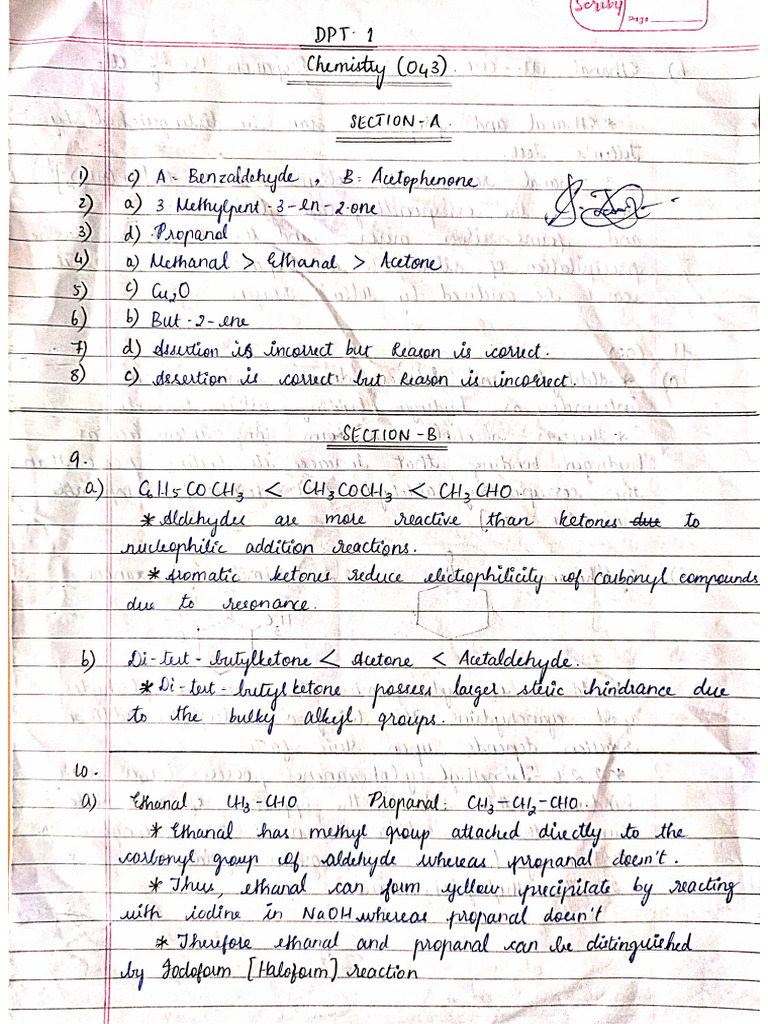 Scriby
Page
DPT. 1
Chemistry (043).
SECTION-A.
1) c) A - Benzaldehyde, B = Acetophenone
2) a) 3 Methylpent-3-en-2-one
3) d) Propanal
4) a) Methanal > Ethanal > Acetone
5) c) Cu₂O
6) b) But-2-ene
7) d) Assertion is incorrect but Reason is correct.
8) c) Assertion is correct but Reason is incorrect.
SECTION-B.
9.
a) C₆H₅COCH₃ < CH₃COCH₃ < CH₃CHO
* Aldehydes are more reactive than ketones due to
nucleophilic addition reactions.
* Aromatic ketones reduce electrophilicity of carbonyl compounds
due to resonance.
b) Di-tert-butylketone < Acetone < Acetaldehyde.
* Di-tert-butyl ketone possess larger steric hindrance due
to the bulky alkyl groups.
10.
a) Ethanal: CH₃-CHO Propanal: CH₃-CH₂-CHO.
* Ethanal has methyl group attached directly to the
carbonyl group of aldehyde whereas propanal doesn't.
* Thus, ethanal can form yellow precipitate by reacting
with iodine in NaOH whereas propanal doesn't
* Therefore ethanal and propanal can be distinguished
by Iodoform [Haloform] reaction